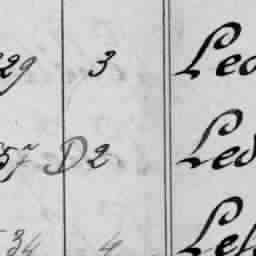 29 3 Leo
57 D2 Led
34 4 Lef